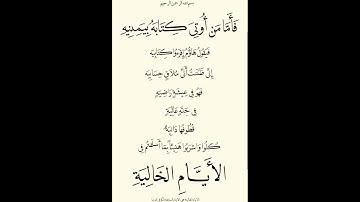 بسم الله الرحمن الرحيم
فَأَمَّا مَنْ أُوتِيَ كِتَابَهُ بِيَمِينِهِ
فَيَقُولُ هَاؤُمُ اقْرَءُوا كِتَابِيَهْ
إِنِّي ظَنَنْتُ أَنِّي مُلَاقٍ حِسَابِيَهْ
فَهُوَ فِي عِيشَةٍ رَاضِيَةٍ
فِي جَنَّةٍ عَالِيَةٍ
قُطُوفُهَا دَانِيَةٌ
كُلُوا وَاشْرَبُوا هَنِيئًا بِمَا أَسْلَفْتُمْ فِي
الْأَيَّامِ الْخَالِيَةِ